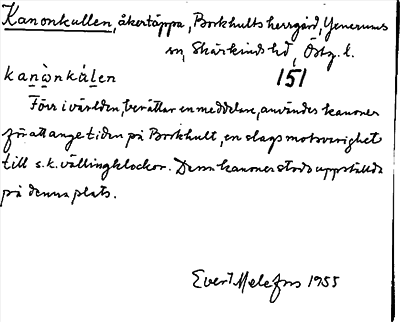 Kanonkullen, åkertäppa, Borkhults herrgård, Yxnerums
sn, Skärkinds hd, Östg. l.
151
kanònkúlen
Förr i världen, berättar en meddelare, användes kanoner
för att ange tiden på Borkhult, en slags motsvarighet
till s.k. vällingklockor. Dessa kanoner stodo uppställda
på denna plats.
Evert Melefors 1955